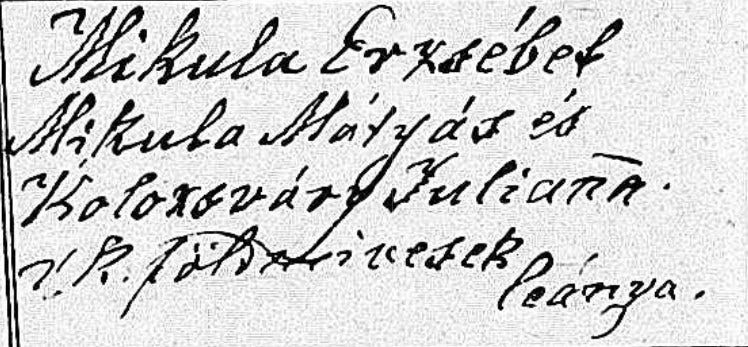 Mikula Erzsébet
Mikula Mátyás és
Kolozsváry Juliánna.
r. k. földmivesek
leánya.